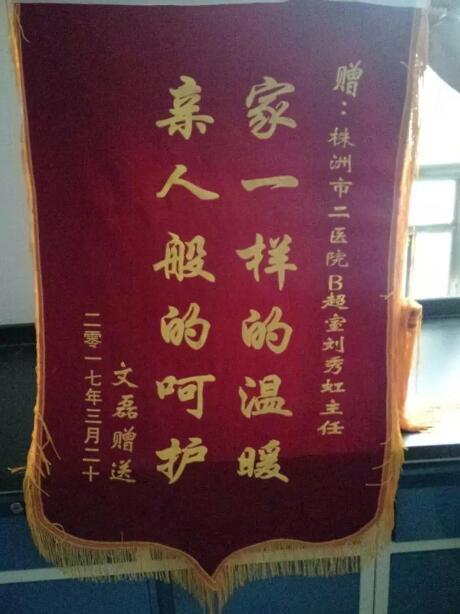 赠：株洲市二医院B超室刘秀虹主任
家一样的温暖
亲人般的呵护
文磊赠送
二零一七年三月二十